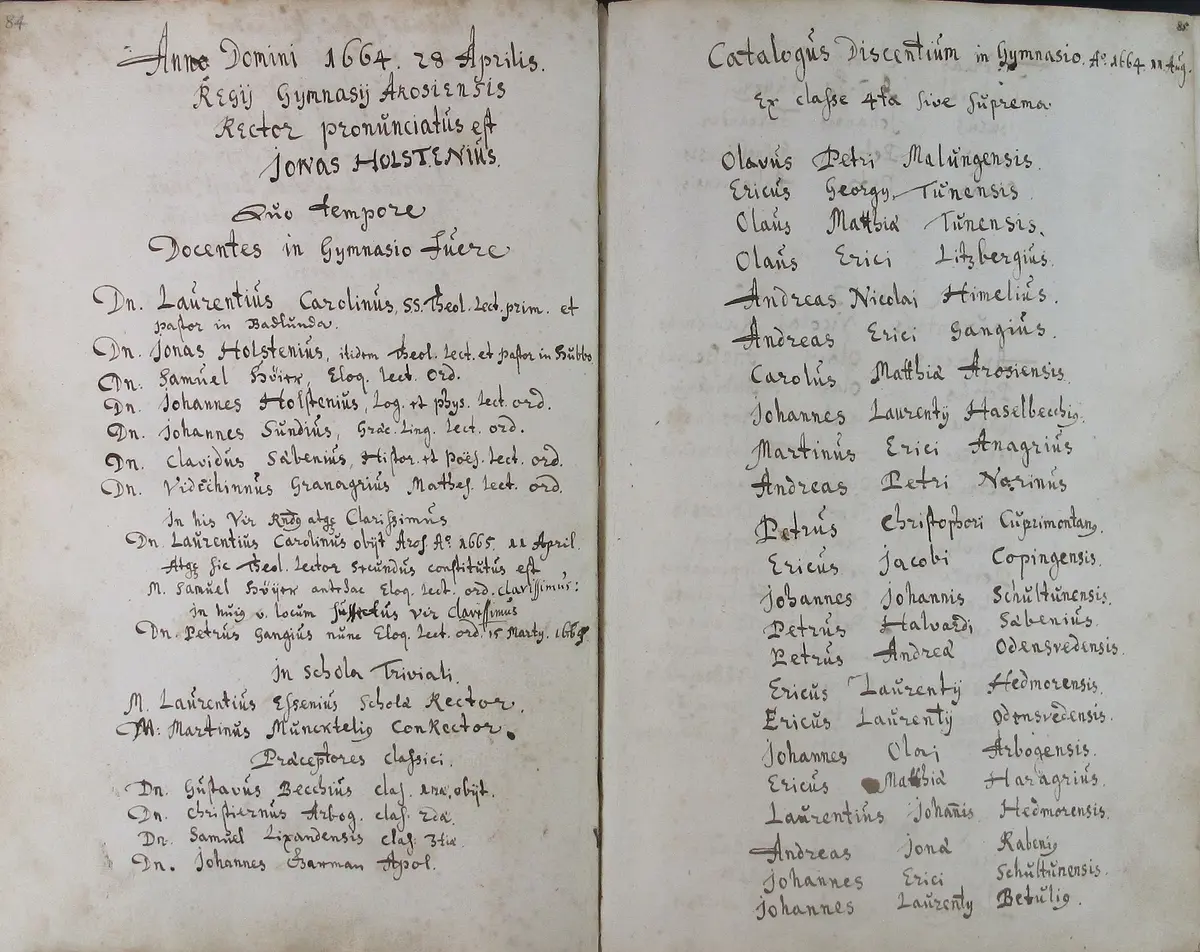 84
Anno Domini 1664. 28 Aprilis.
Regij Gymnasij Arosiensis
Rector pronunciatus est
JONAS HOLSTENIUS.
Quo tempore
Docentes in Gymnasio fuere
Dn. Laurentius Carolinus, SS. Theol. Lect. prim. et
pastor in Badlunda.
Dn. Jonas Holstenius, itidem Theol. Lect. et pastor in Hubbo
Dn. Samuel Höijer, Eloq. lect. ord.
Dn. Johannes Holstenius, Log. et phys. lect. ord.
Dn. Johannes Sundius, Græc. Ling. lect. ord.
Dn. Clavidus Sabenius, Histor. et poës. lect. ord.
Dn. Videchinnus Granagrius Mathes. lect. ord.
In his Vir Rndq atqe Clarissimus
Dn. Laurentius Carolinus obijt Aros. Aº 1665. 11 April.
Atqe sic Theol. Lector secundus constitutus est
M. Samuel Höijer antehac Eloq. lect. ord. clarissimus:
in huiq v. locum suffectus vir clarissimus
Dn. Petrus Gangius nunc Eloq. Lect. ord. 15 Martij. 1665
in schola Triviali.
M. Laurentius Essenius Scholæ Rector.
M: Martinus Munckteliq ConRector.
Præceptores classici.
Dn. Gustavus Becchius clas. 1mæ, obijt.
Dn. Christiernus Arbog. clas. 2dæ.
Dn. Samuel Lixandensis clas: 3tiæ.
Dn. Johannes Gharman Apol.
85
Catalogus Discentium in Gymnasio. Aº. 1664. 11 Aug.
Ex classe 4ta sive suprema
Olavus Petri Malungensis.
Ericus Georgij Tunensis
Olaus Matthiæ Tunensis.
Olaus Erici Litzbergius.
Andreas Nicolai Himelius.
Andreas Erici Gangius.
Carolus Matthiæ Arosiensis.
Johannes Laurentij Haselbecchiq.
Martinus Erici Anagrius
Andreas Petri Norinus
Petrus Christophori Cuprimontanq.
Ericus Jacobi Copingensis.
Johannes Johannis Schultunensis.
Petrus Halvardi Sabenius.
Petrus Andreæ Odensvedensis.
Ericus Laurentij Hedmorensis.
Ericus Laurentij Odensvedensis.
Johannes Olai Arbogensis.
Ericus Matthiæ Haragrius.
Laurentius Johañis Hedmorensis.
Andreas Jonæ Rabeniq
Johannes Erici Schultunensis.
Johannes Laurentij Betuliq.